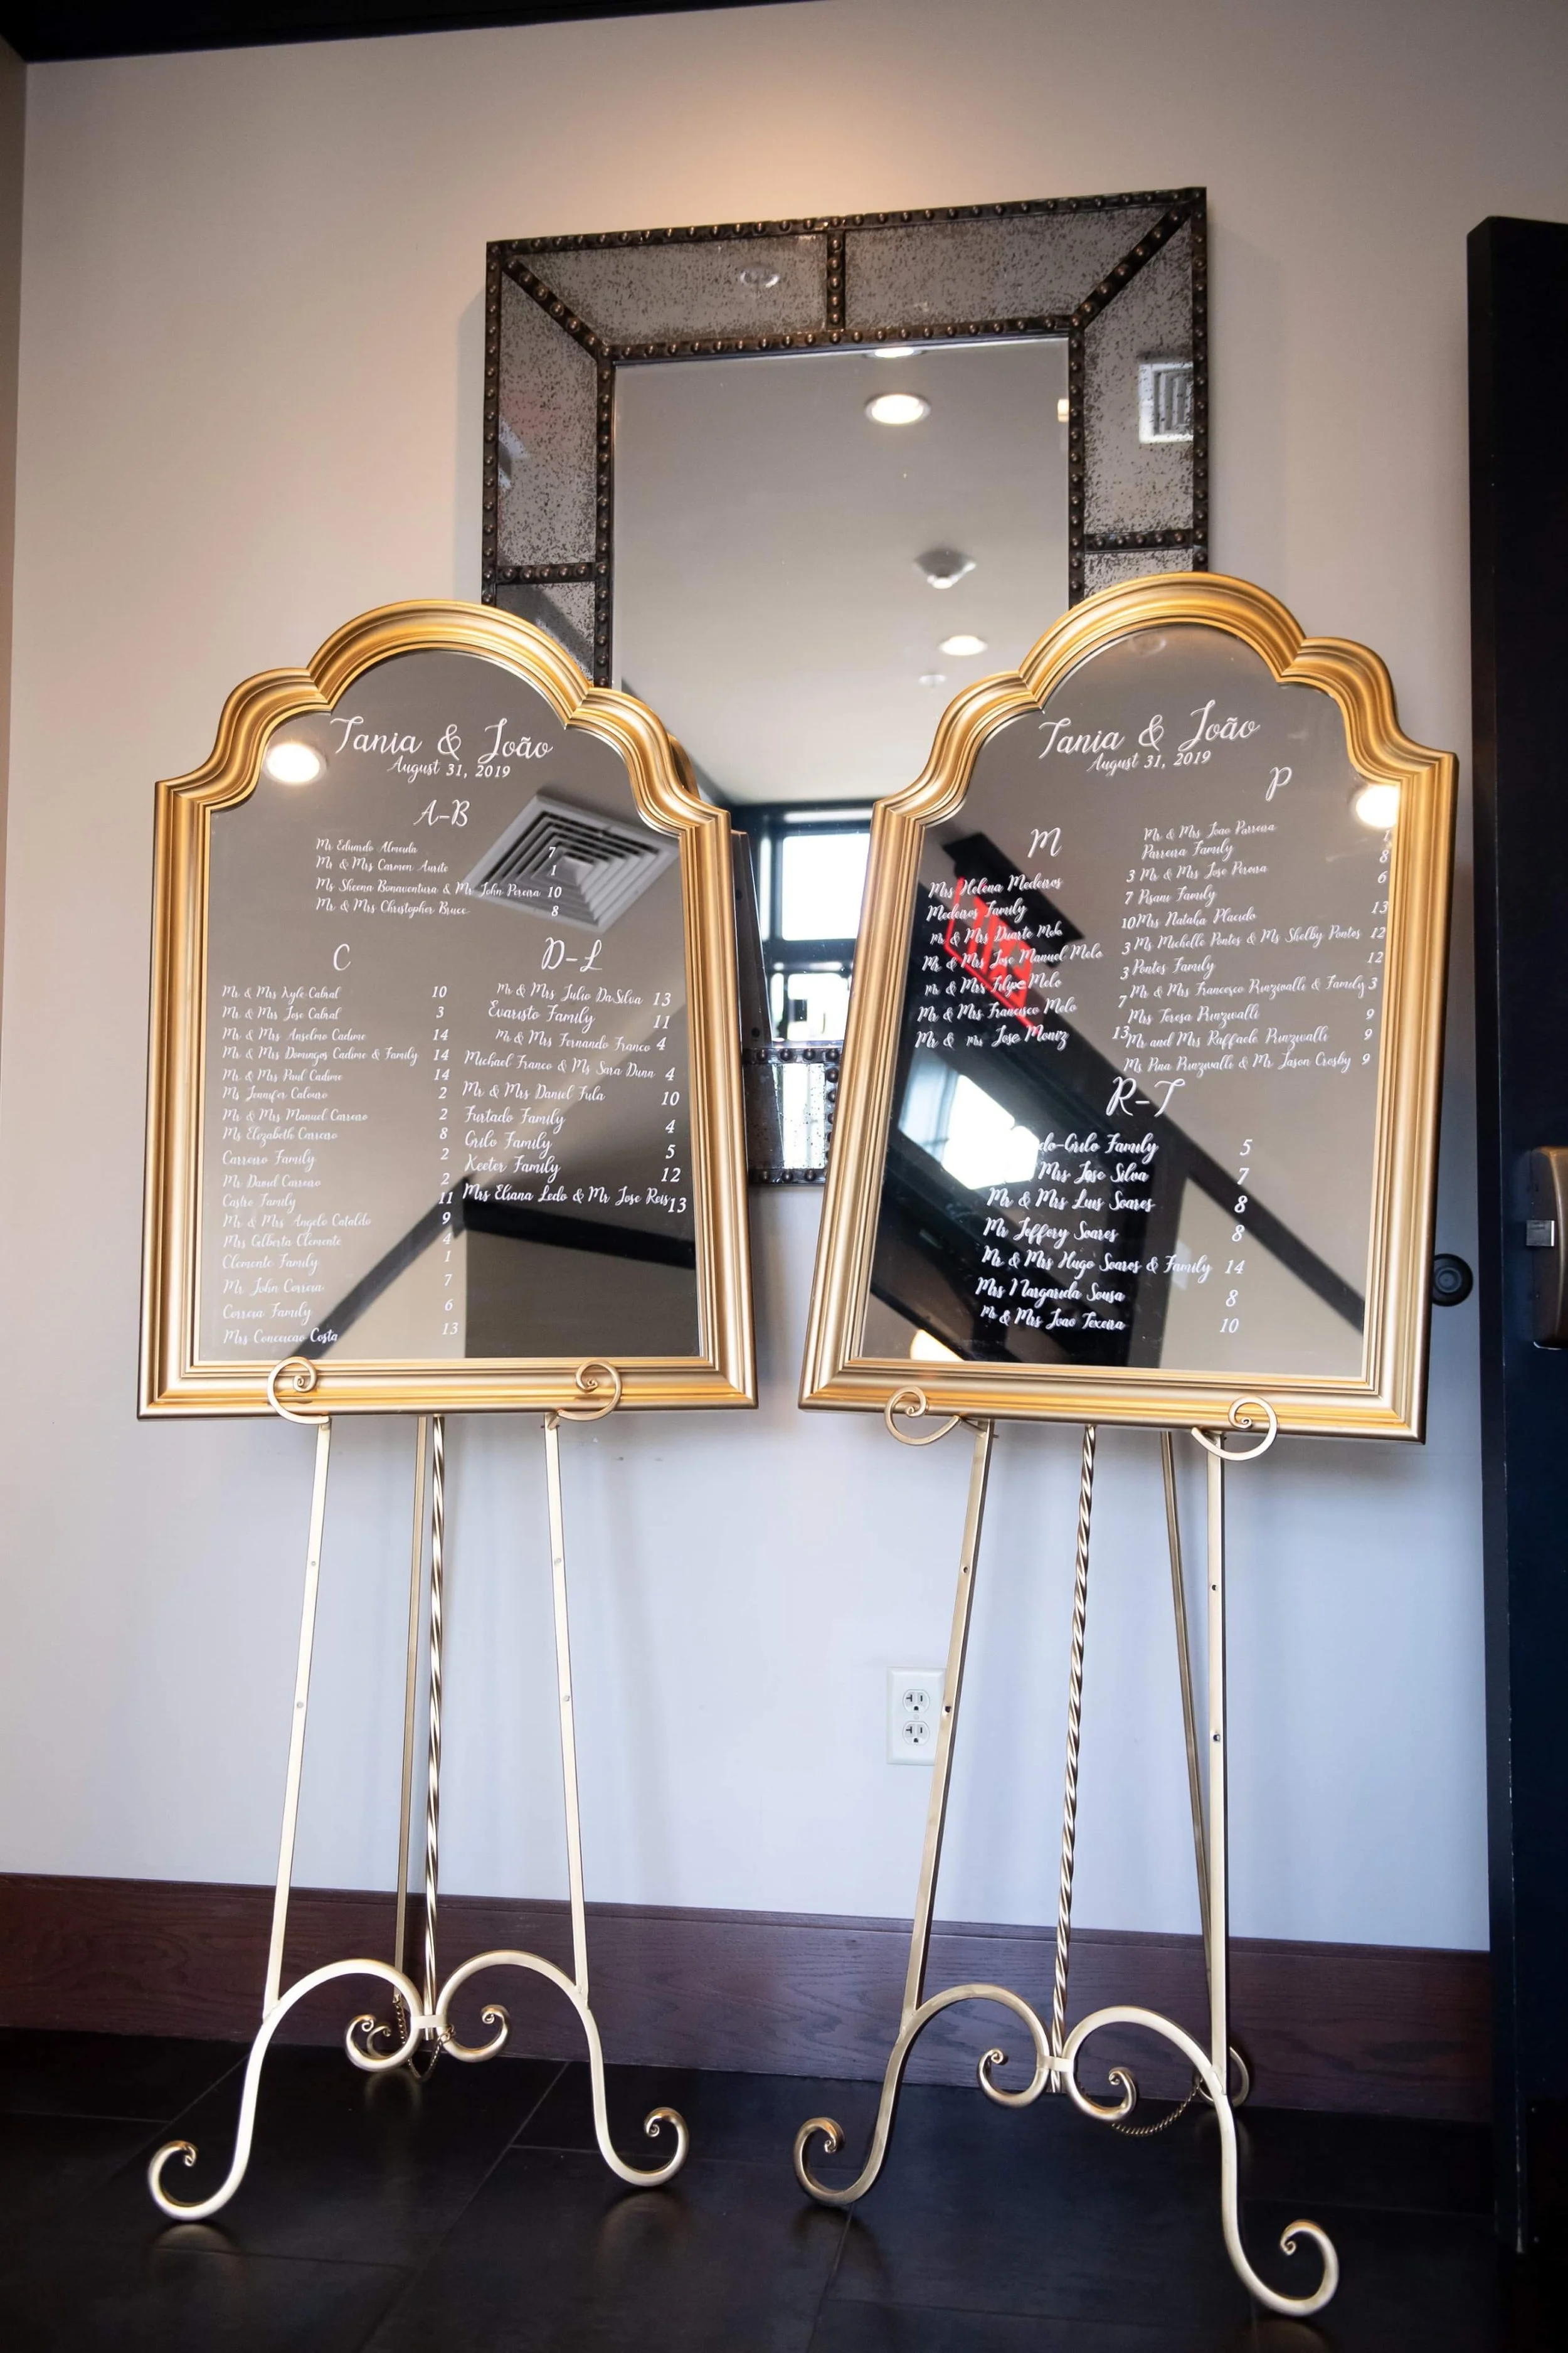 Tania & João
August 31, 2019
A-B
Mr Eduardo Almeida 7
Mr & Mrs Carmen Aurite 1
Ms Sheena Bonaventura & Mr John Pereira 10
Mr & Mrs Christopher Bruce 8
C
Mr & Mrs Kyle Cabral 10
Mr & Mrs Jose Cabral 3
Mr & Mrs Anselmo Cadime 14
Mr & Mrs Domingos Cadime & Family 14
Mr & Mrs Paul Cadime 14
Ms Jennifer Calouro 2
Mr & Mrs Manuel Carreiro 2
Ms Elizabeth Carreiro 8
Carreiro Family 2
Mr David Carreiro 2
Castro Family 11
Mr & Mrs Angelo Cataldo 9
Mrs Gilberta Clemente 4
Clemente Family 1
Mr John Correia 7
Correia Family 6
Mrs Conceicao Costa 13
D-L
Mr & Mrs Julio DaSilva 13
Evaristo Family 11
Mr & Mrs Fernando Franco 4
Michael Franco & Ms Sara Dunn 4
Mr & Mrs Daniel Fula 10
Furtado Family 4
Grilo Family 5
Keeter Family 12
Mrs Eliana Ledo & Mr Jose Reis 13
Tania & João
August 31, 2019
M
Mrs Helena Medeiros 3
Medeiros Family 7
Mr & Mrs Duarte Melo 10
Mr & Mrs Jose Manuel Melo 3
Mr & Mrs Filipe Melo 3
Mr & Mrs Francisco Melo 7
Mr & Mrs Jose Moniz 13
P
Mr & Mrs Joao Parreira 1
Parreira Family 8
Mr & Mrs Jose Pereira 6
Pisani Family
Mrs Natalia Placido 13
Ms Michelle Pontes & Ms Shelby Pontes 12
Pontes Family 12
Mr & Mrs Francesco Punzivalli & Family 3
Mrs Teresa Punzivalli 9
Mr and Mrs Raffaele Punzivalli 9
Ms Pina Punzivalli & Mr Jason Crosby 9
R-T
do-Grilo Family 5
Mrs Jose Silva 7
Mr & Mrs Luis Soares 8
Mr Jeffery Soares 8
Mr & Mrs Hugo Soares & Family 14
Mrs Margarida Sousa 8
Mr & Mrs Joao Texeira 10